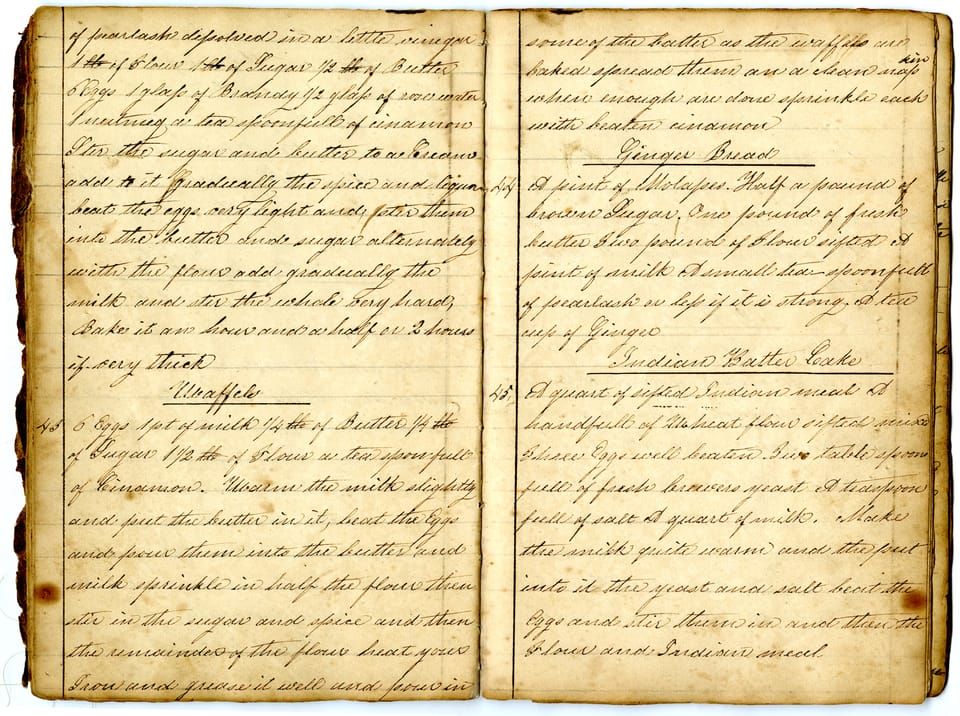 of pearlash desolved in a little vinegar
1 lb of Flour 1 lb of Sugar 1/2 lb of Butter
6 Eggs 1 glass of Brandy 1/2 glass of rose water
1 nutmeg a tea spoonfull of cinamon
Ster the sugar and butter to a Cream
add to it gradually the spice and liquor
beat the eggs very light and ster them
into the butter and sugar alternately
with the flour add gradually the
milk and ster the whole very hard,
Bake it an hour and a half or 2 hours
if very thick
Waffels
43 6 Eggs 1 pt of milk 1/4 lb of Butter 1/4 lb
of Sugar 1 1/2 lb of Flour a tea sponfull
of Cinamon. Warm the milk slightly
and put the butter in it, beat the Eggs
and pour them into the butter and
milk sprinkle in half the flour then
ster in the sugar and spice and then
the remainder of the flour heat your
Iron and grease it well and pour in
some of the batter as the waffils are
baked spread them on a clean napkin
when enough are done sprinkle each
with beaten cinamon
Ginger Bread
44 A pint of Molasses. Half a pound of
brown Sugar. One pound of fresh
butter Two pound of Flour sifted A
pint of milk A small tea-spoonfull
of pearlash or less if it is strong. A tea
cup of Ginger
Indian Batter Cake
45, A quart of sifted Indian meal A
handfull of Wheat flour sifted mixd
Three Eggs well beaten. Two table spoons
full of fresh brewers yeast A teaspoon
full of salt A quart of milk. Make
the milk quite warm and the put
into it the yeast and salt beat the
Eggs and ster them in and then the
Flour and Indian meal